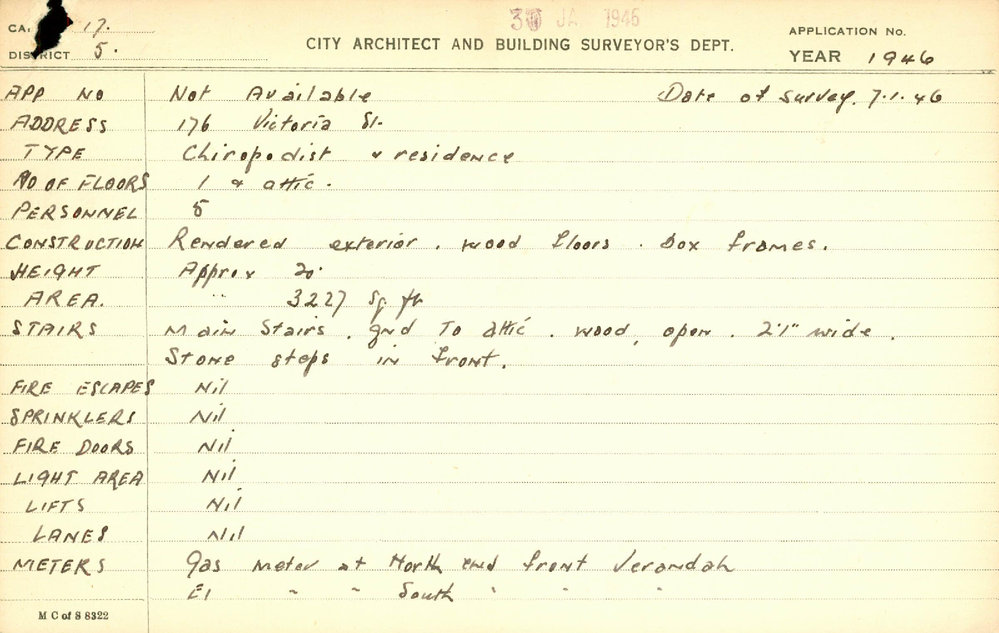 CA. 17.
30 JA 1946
APPLICATION No.
DISTRICT 5.
CITY ARCHITECT AND BUILDING SURVEYOR'S DEPT.
YEAR 1946
APP NO Not Available Date of Survey. 7.1.46
ADDRESS 176 Victoria St.
TYPE Chiropodist & residence
NO OF FLOORS 1 & attic.
PERSONNEL 5
CONSTRUCTION Rendered exterior. wood floors. Box frames.
HEIGHT Approx 20'
AREA. " 3227 Sq ft
STAIRS Main Stairs. gnd To attic. wood, open. 2'1" wide.
Stone steps in front.
FIRE ESCAPES Nil
SPRINKLERS Nil
FIRE DOORS Nil
LIGHT AREA Nil
LIFTS Nil
LANES Nil
METERS Gas meter at North end front Verandah
El " " South " " "
M C of S 8322